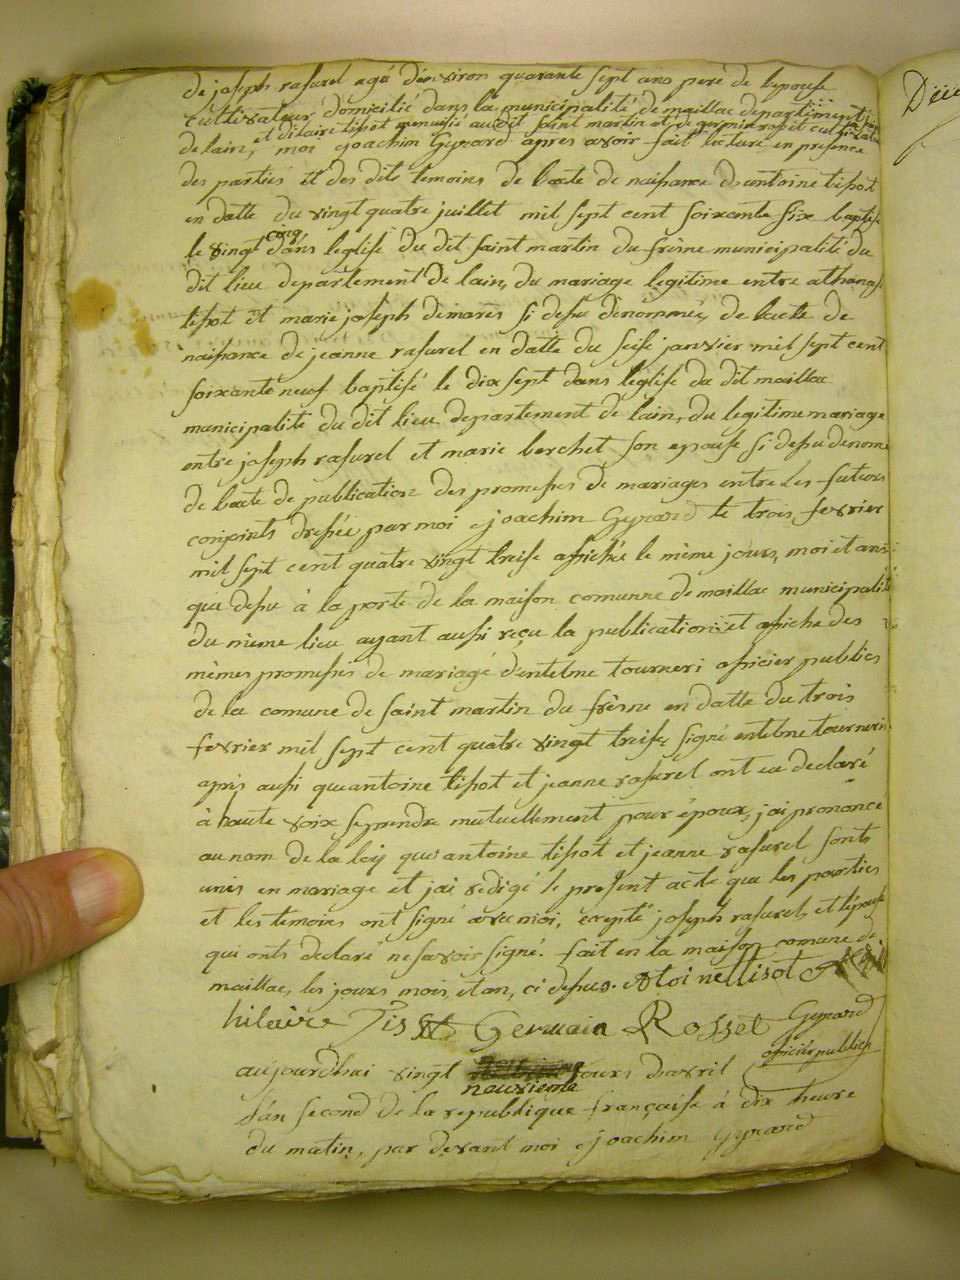 de joseph rasurel agé denviron quarante sept ans pere de lepouse
cultivateur domicilié dans la municipalité de maillac departiment
et hilaire tisot menuisié audit saint martin et germain rosset cultivateur
de lain, moi joachim Gynard apres avoir fait lecture en presence
des parties et des dits temoins de lacte de naissance dentoine tissot
en datte du vingt quatre juillet mil sept cent soixante six baptisé
le vingt cinq dans leglise du dit saint martin du fresne municipalité du
dit lieu departement de lain, du mariage legitime entre athanase
tissot et marie joseph demares si desu denommés, de lacte de
naissance de jeanne rasurel en datte du seise janvier mil sept cent
soixante neuf baptisé le dix sept dans leglise du dit maillac
municipalité du dit lieu departement de lain, du legitime mariage
entre joseph rasurel et marie berchet son epouse si desu denome
de lacte de publication des promesses de mariages entre les futeurs
conjoints dressée par moi joachim Gynard le trois fevrier
mil sept cent quatre vingt treise affichée le même jours, moi et ans
que desu à la porte de la maison comunne de maillac municipalité
du même lieu ayant aussi reçu la publication et afiche des
mêmes promesses de mariage d'entelme tourneri officier publics
de la comune de saint martin du frêsne en datte du trois
fevrier mil sept cent quatre vingt treise, signé entelme tournerie
apres aussi quantoine tissot et jeanne rasurel ont eu declaré
à haute voix seprendre mutuellement pour époux, jai prononcé
au nom de la loy que antoine tissot et jeanne rasurel sonts
unis en mariage et jai redigé le present acte que les parties
et les temoins ont signé avec moi, exepté joseph rasurel, et lépouse
qui onts declaré ne savoir signé. fait en la maison comune de
maillac, les jours mois et an, ci desus. Atoinettisot
hilaire Tissot Germain Rosset Gynard
officier publics
aujourdhui vingt jours davril
neuvieme
l'an second de la republique française à dix heure
du matin, par devant moi joachim Gynard